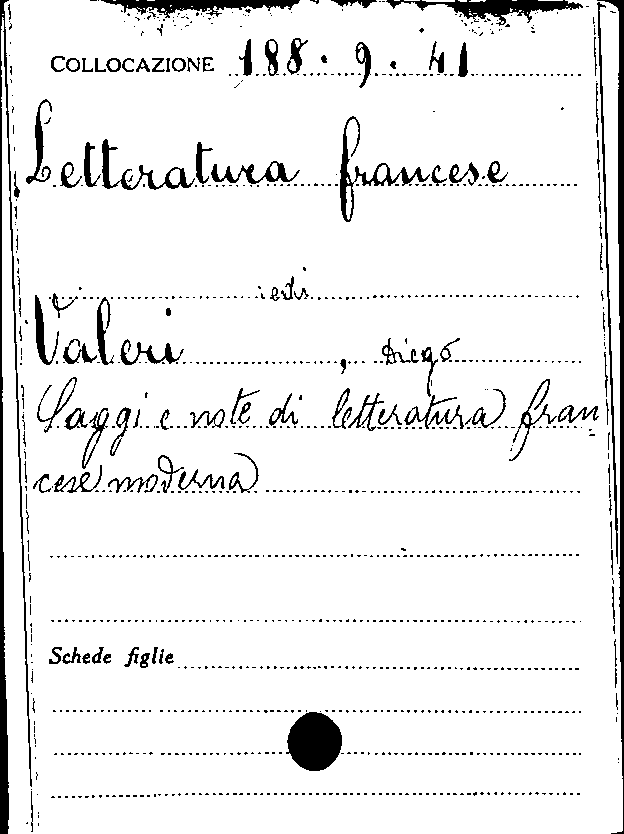 COLLOCAZIONE 188. 9. 41
Letteratura francese
vedi
Valeri, Diego
Saggi e note di letteratura fran=
cese moderna
Schede figlie